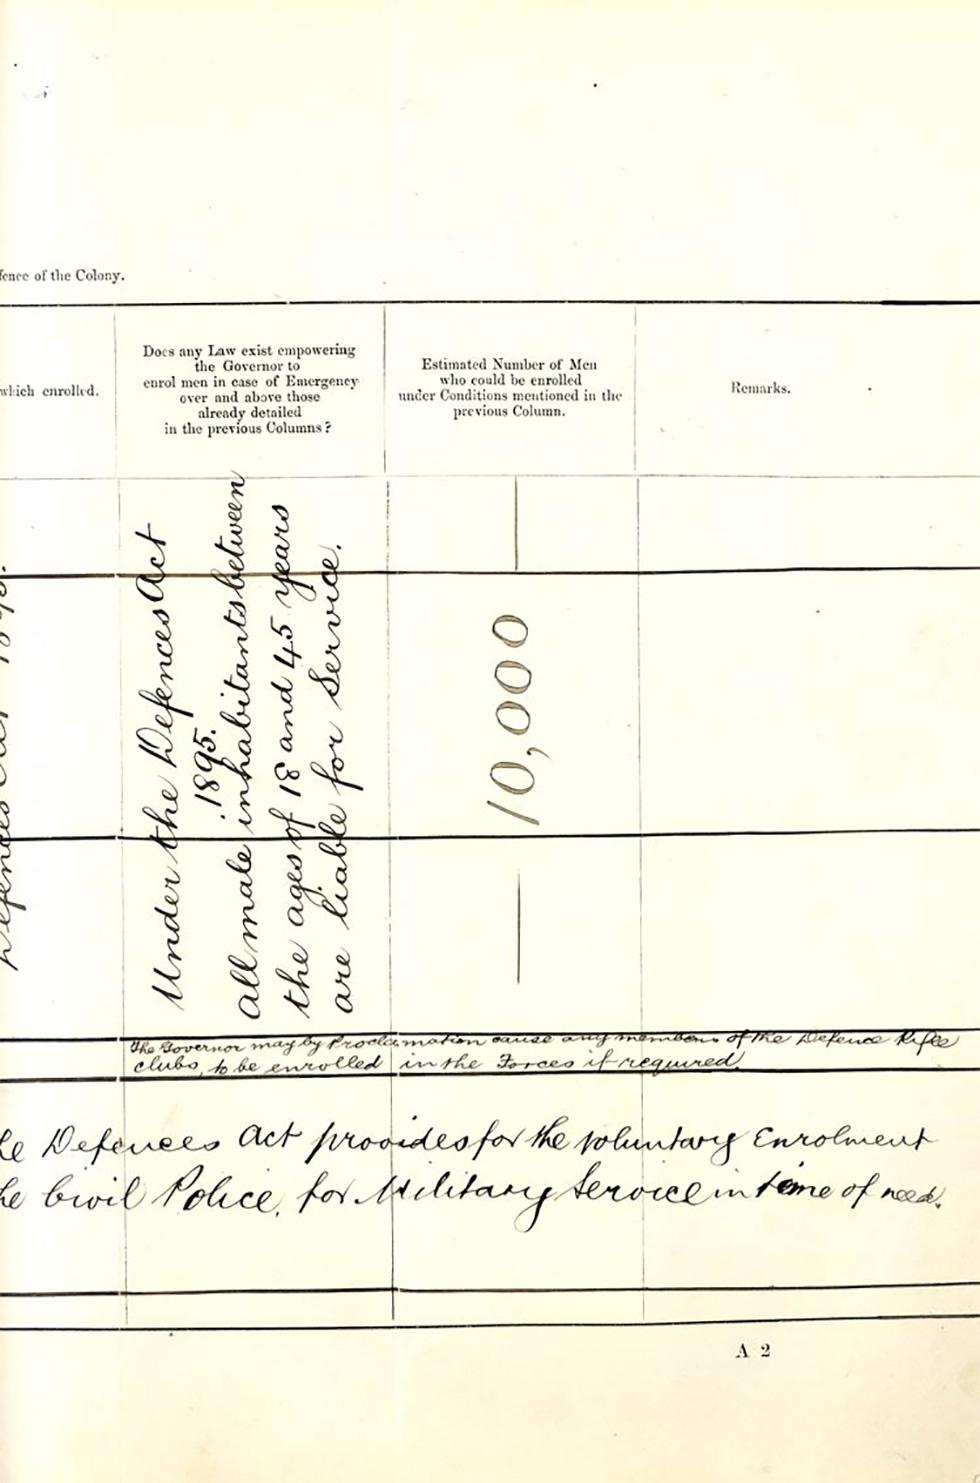 fence of the Colony.
which enrolled.
Does any Law exist empowering
the Governor to
enrol men in case of Emergency
over and above those
already detailed
in the previous Columns?
Estimated Number of Men
who could be enrolled
under Conditions mentioned in the
previous Column.
Remarks.
Defences Act
Under the Defences Act
1895.
all male inhabitants between
the ages of 18 and 45 years
are liable for Service.
10,000
The Governor may by Proclamation cause any members of the Defence Rifle
clubs, to be enrolled in the Forces if required.
he Defences Act provides for the voluntary Enrolment
he Civil Police, for Military Service in time of need.
A 2